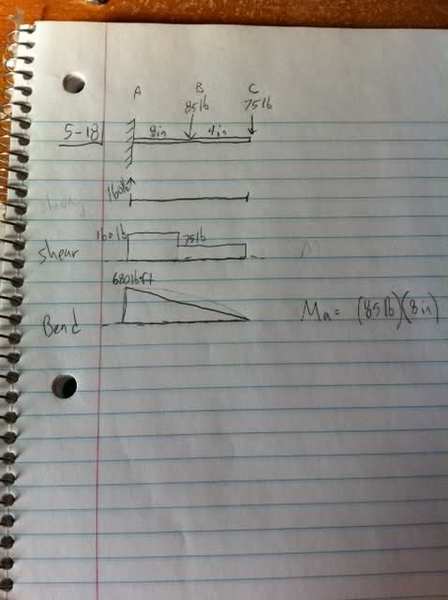 A B C
85lb 75lb
5-18 8in 4in
160lb
160lb 75lb
shear
680lb·ft
Bend Ma = (85lb)(8in)